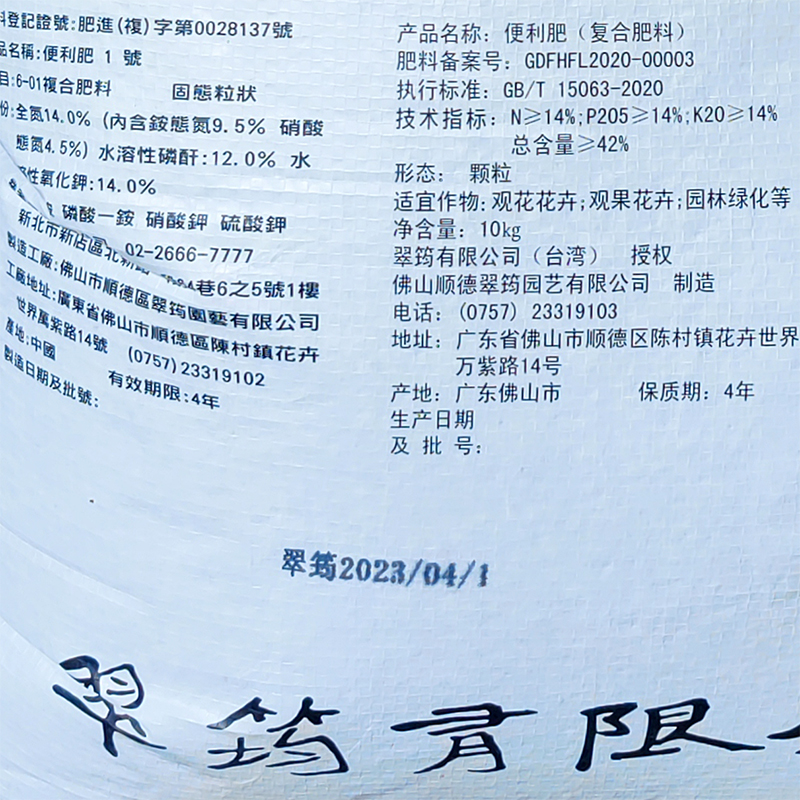 料登記證號:肥進(複)字第0028137號
品名稱:便利肥 1 號
目:6-01複合肥料 固態粒狀
份:全氮14.0% (內含銨態氮9.5% 硝酸
態氮4.5%) 水溶性磷酐:12.0% 水
性氧化鉀:14.0%
磷酸一銨 硝酸鉀 硫酸鉀
02-2666-7777
新北市新店區北新路 巷6之5號1樓
製造工廠:佛山市順德區翠筠園藝有限公司
工廠地址:廣東省佛山市順德區陳村鎮花卉
世界萬紫路14號 (0757)23319102
產地:中國 有效期限:4年
製造日期及批號:
产品名称: 便利肥(复合肥料)
肥料备案号: GDFHFL2020-00003
执行标准: GB/T 15063-2020
技术指标: N≥14%;P2O5≥14%;K2O≥14%
总含量≥42%
形态: 颗粒
适宜作物: 观花花卉;观果花卉;园林绿化等
净含量: 10kg
翠筠有限公司(台湾) 授权
佛山顺德翠筠园艺有限公司 制造
电话: (0757) 23319103
地址: 广东省佛山市顺德区陈村镇花卉世界
万紫路14号
产地: 广东佛山市 保质期: 4年
生产日期
及 批 号:
翠筠2023/04/1
翠筠有限